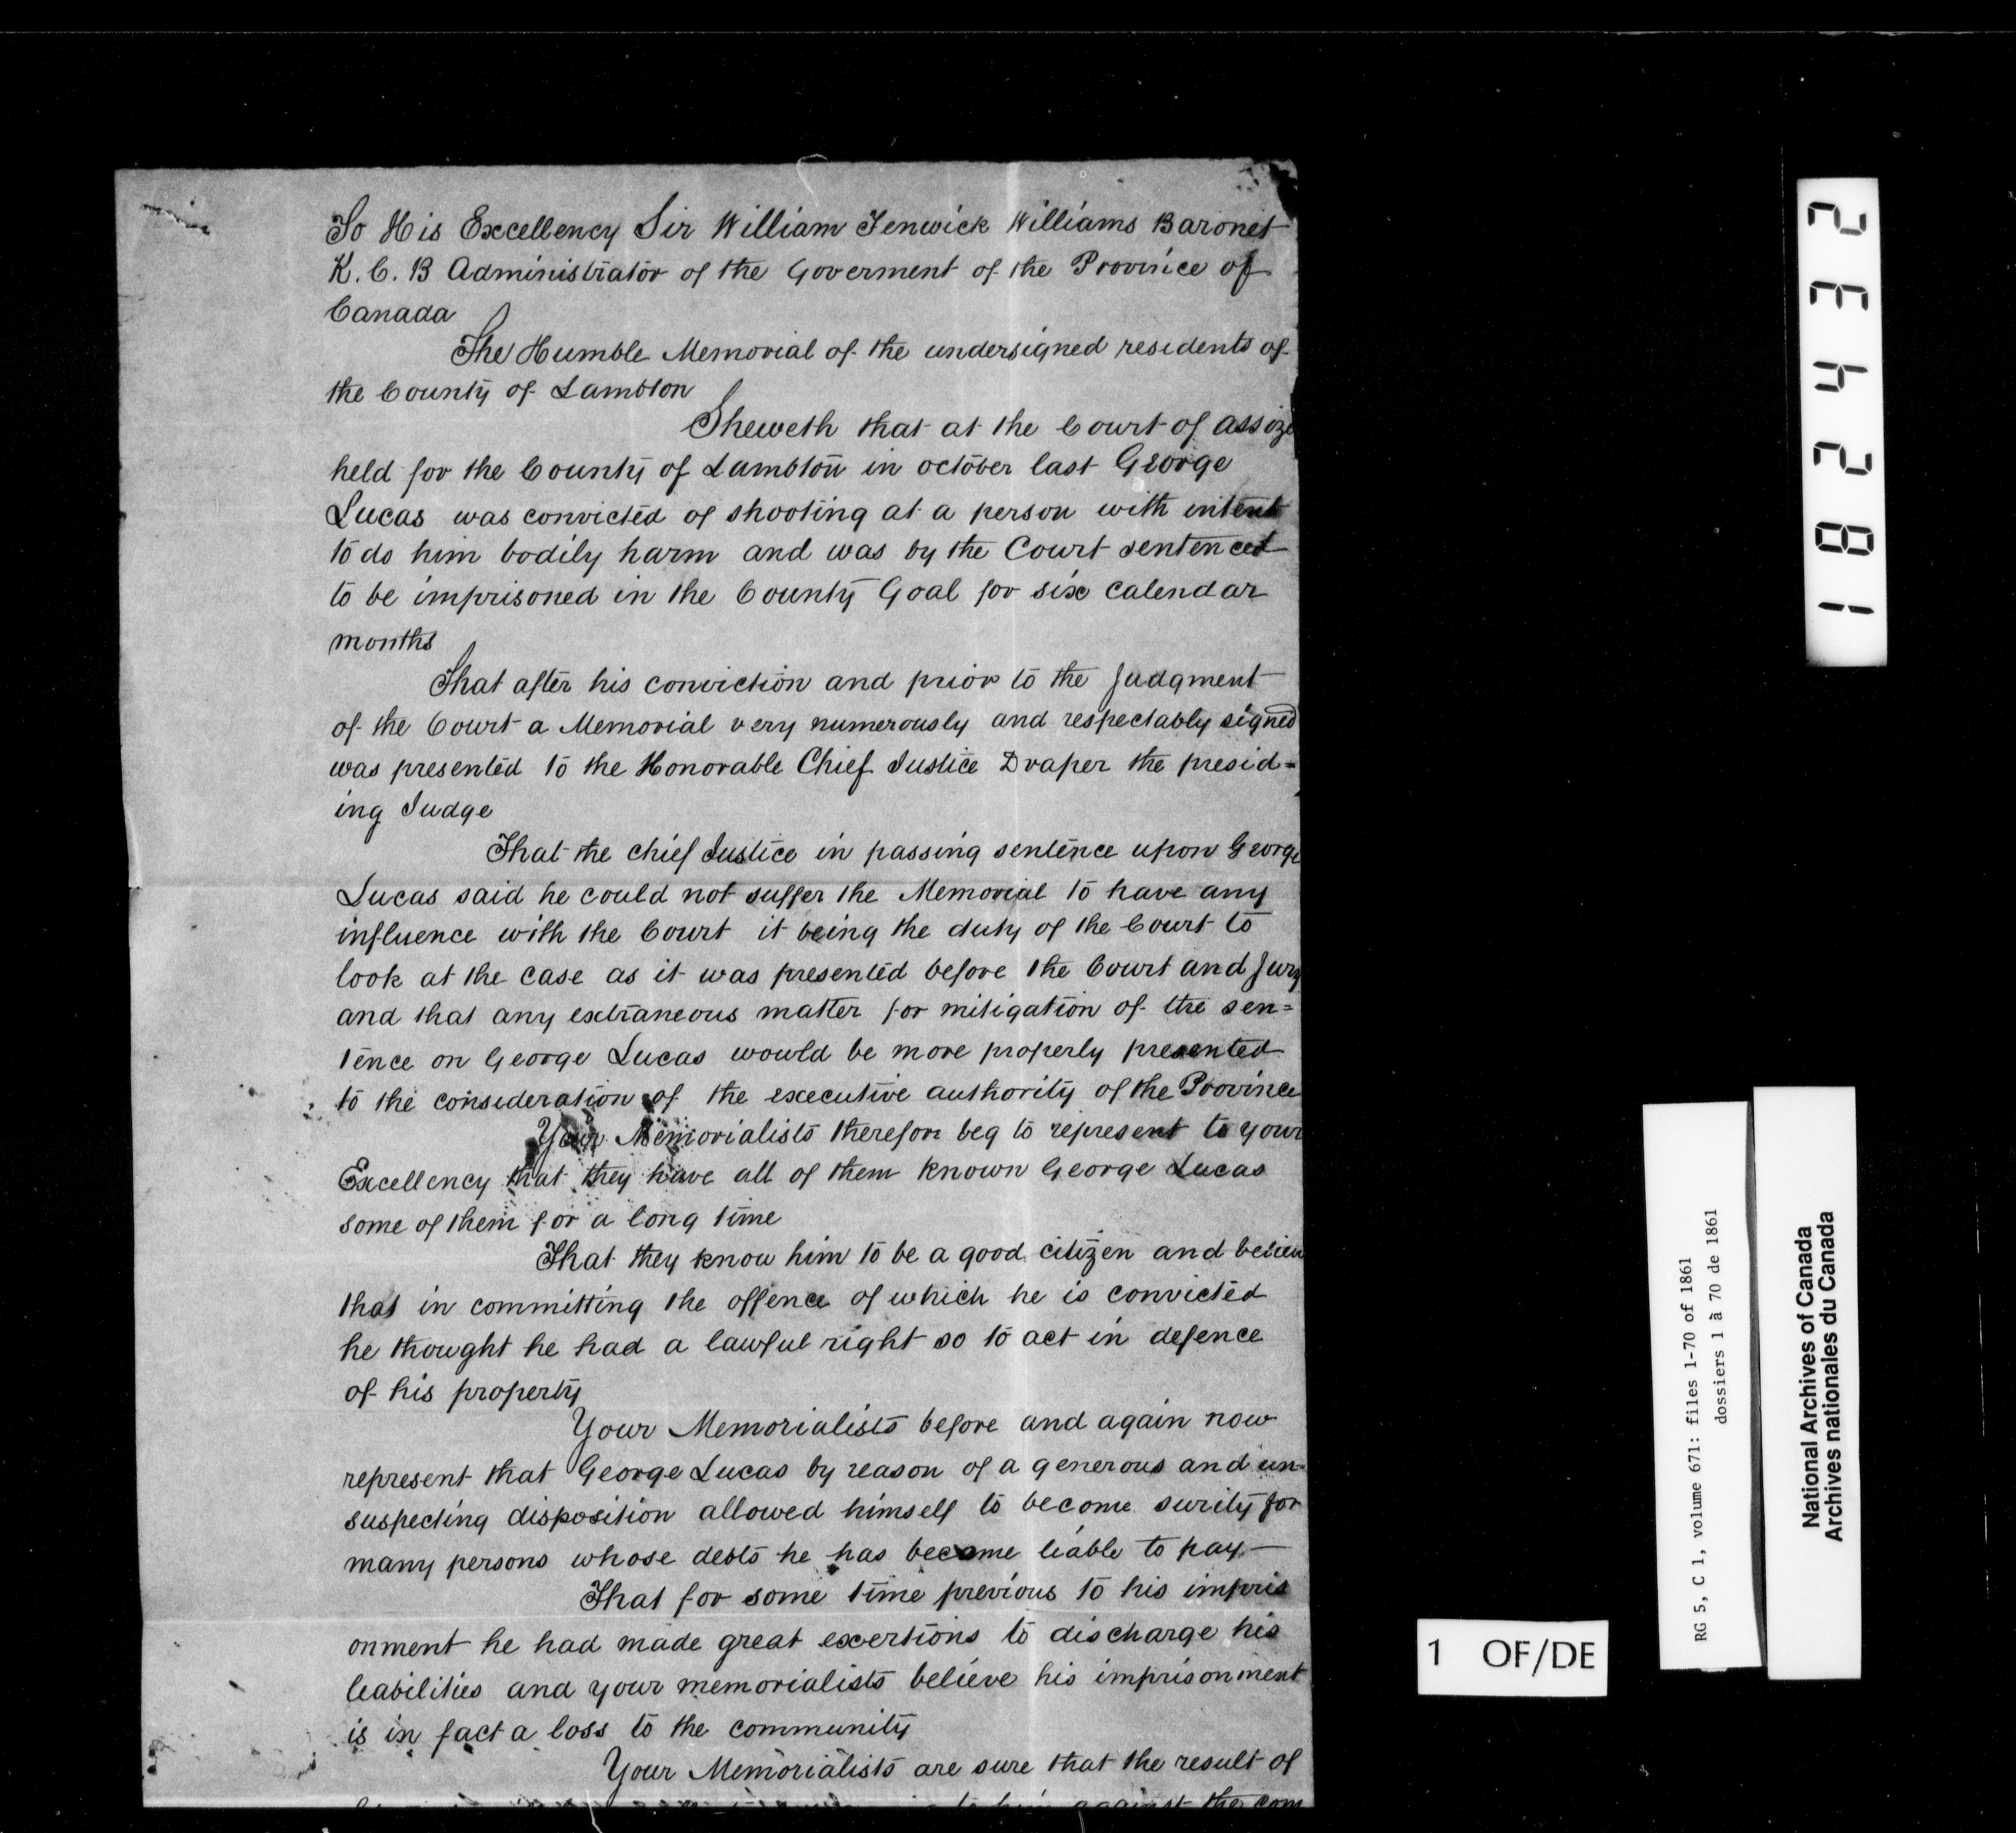 To His Excellency Sir William Fenwick Williams Baronet
K. C. B Administrator of the Goverment of the Province of
Canada
The Humble Memorial of the undersigned residents of
the County of Lambton
Sheweth that at the Court of assize
held for the County of Lambton in october last George
Lucas was convicted of shooting at a person with intent
to do him bodily harm and was by the Court sentenced
to be imprisoned in the County Goal for six calendar
months
That after his conviction and prior to the Judgment
of the Court a Memorial very numerously and respectably signed
was presented to the Honorable Chief Justice Draper the presid=
ing Judge
That the chief Justice in passing sentence upon George
Lucas said he could not suffer the Memorial to have any
influence with the Court it being the duty of the Court to
look at the case as it was presented before the Court and Jury
and that any extraneous matter for mitigation of the sen=
tence on George Lucas would be more properly presented
to the consideration of the executive authority of the Province
Your Memorialists therefore beg to represent to your
Excellency that they have all of them known George Lucas
some of them for a long time
That they know him to be a good citizen and believe
that in committing the offence of which he is convicted
he thought he had a lawful right so to act in defence
of his property
Your Memorialists before and again now
represent that George Lucas by reason of a generous and un=
suspecting disposition allowed himself to become surity for
many persons whose debts he has become liable to pay—
That for some time previous to his impris
onment he had made great exertions to discharge his
liabilities and your memorialists believe his imprisonment
is in fact a loss to the community
Your Memorialists are sure that the result of
to him against the com
234281
1 OF/DE
RG 5, C 1, volume 671: files 1-70 of 1861
dossiers 1 à 70 de 1861
National Archives of Canada
Archives nationales du Canada